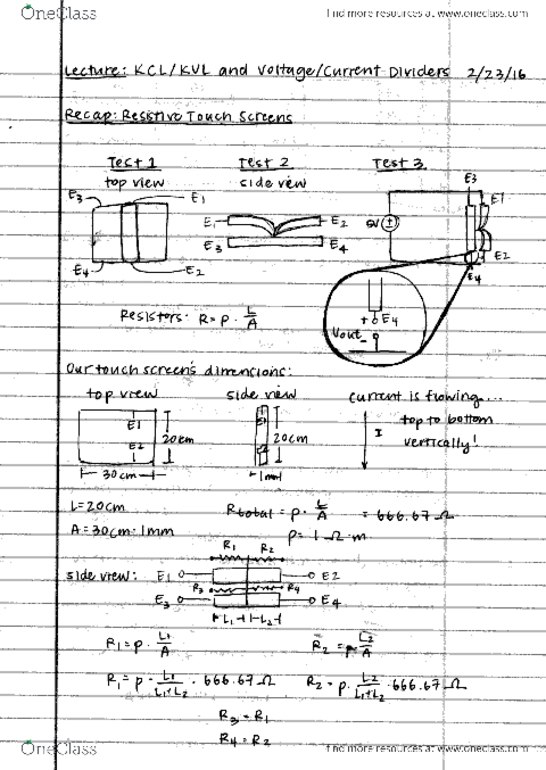 OneClass
find more resources at www.oneclass.com
Lecture: KCL/KVL and Voltage/Current Dividers 2/23/16
Recap: Resistive Touch Screens
Test 1 Test 2 Test 3
top view side view
E3 E1
E4 E2
E1 E2
E3 E4
E3
E1
5V
E2
E4
+ E4
Vout -
Resistors: R = ρ · L/A
Our touch screen's dimensions:
top view side view current is flowing...
top to bottom
vertically!
E1
E2
20cm
30cm
20cm
1mm
I
L=20cm
A=30cm·1mm
Rtotal = ρ · L/A = 666.67Ω
ρ= 1 Ω·m
side view:
R1 R2
E1 E2
R3 R4
E3 E4
L1 L2
R1 = ρ · L1/A
R2 = ρ · L2/A
R1 = ρ · L1/L1+L2 · 666.67Ω
R2 = ρ · L2/L1+L2 · 666.67Ω
R3 = R1
R4 = R2
OneClass
find more resources at www.oneclass.com